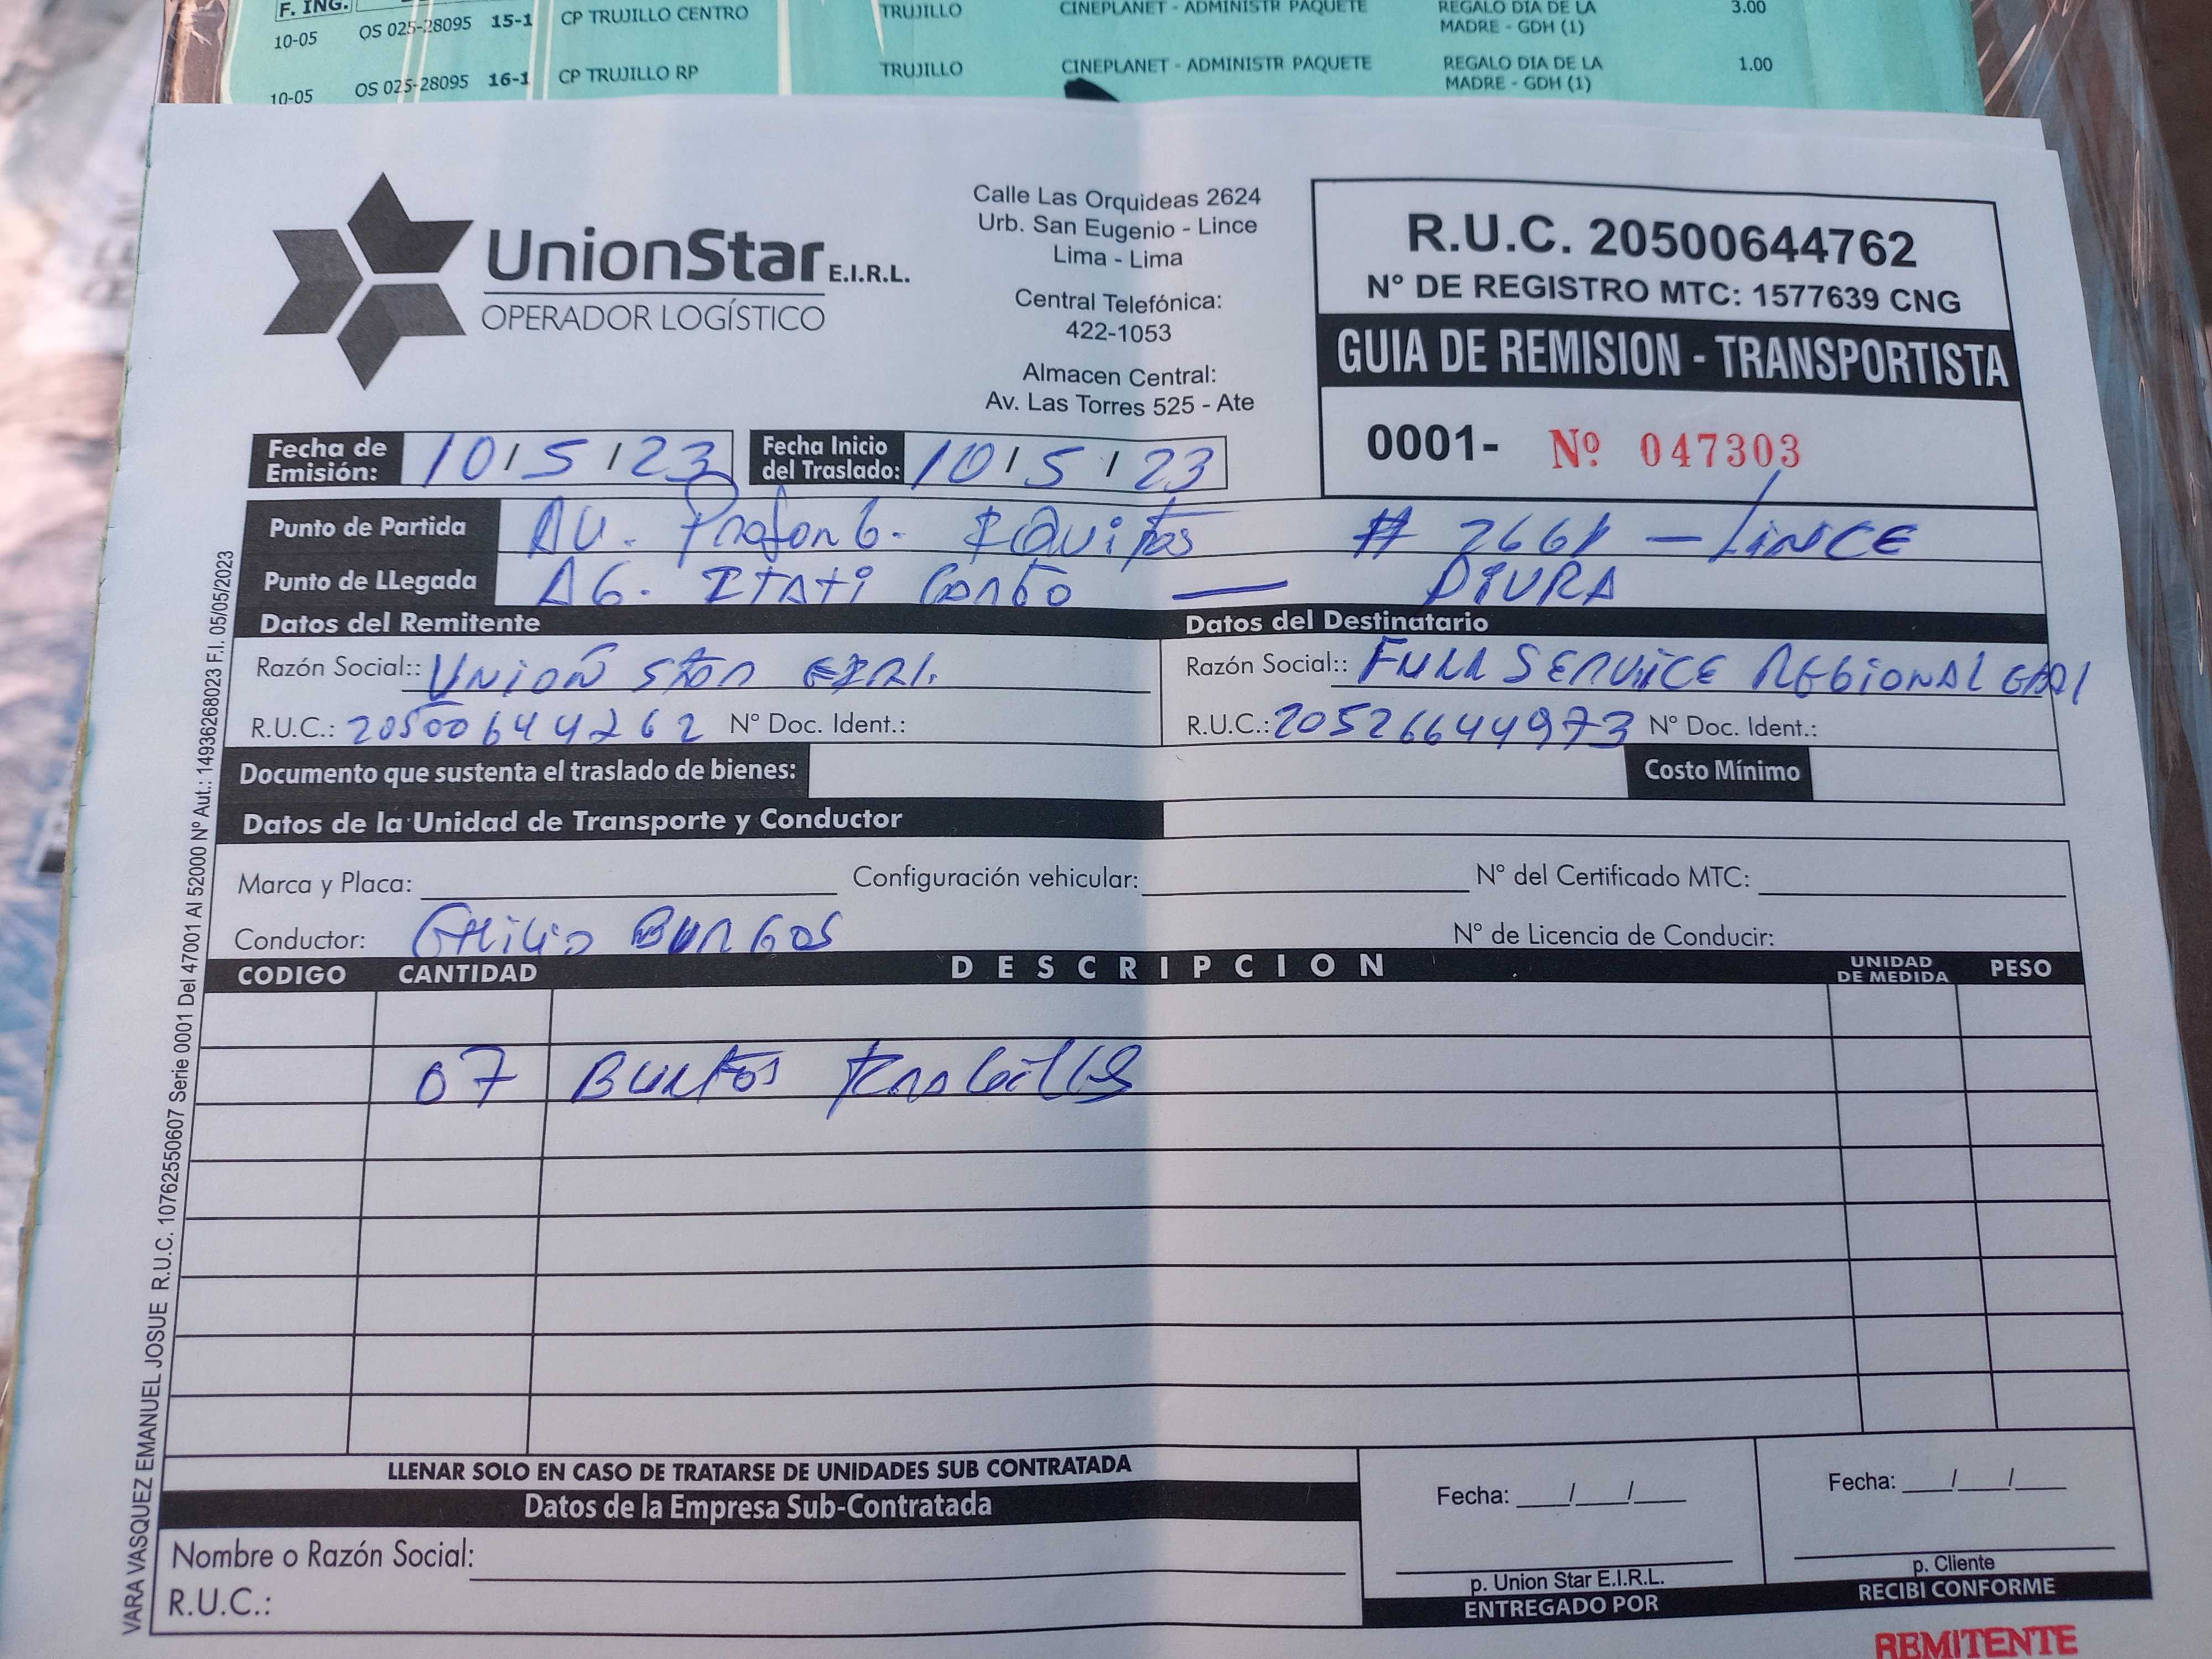 F. ING.
10-05 OS 025-28095 15-1 CP TRUJILLO CENTRO TRUJILLO CINEPLANET - ADMINISTR PAQUETE REGALO DIA DE LA MADRE - GDH (1) 3.00
10-05 OS 025-28095 16-1 CP TRUJILLO RP TRUJILLO CINEPLANET - ADMINISTR PAQUETE REGALO DIA DE LA MADRE - GDH (1) 1.00
UnionStar E.I.R.L.
OPERADOR LOGÍSTICO
Calle Las Orquideas 2624
Urb. San Eugenio - Lince
Lima - Lima
Central Telefónica:
422-1053
Almacen Central:
Av. Las Torres 525 - Ate
R.U.C. 20500644762
N° DE REGISTRO MTC: 1577639 CNG
GUIA DE REMISION - TRANSPORTISTA
0001- Nº 047303
Fecha de Emisión: 10/5/23 Fecha Inicio del Traslado: 10/5/23
Punto de Partida AV. IQuitos # 2661 - LINCE
Punto de LLegada AG. ITATI - PIURA
Datos del Remitente Datos del Destinatario
Razón Social:: UNION Star EIRL. Razón Social:: FULL SERVICE REGIONAL EIRL
R.U.C.: 20500644762 N° Doc. Ident.: R.U.C.: 20526644973 N° Doc. Ident.:
Documento que sustenta el traslado de bienes: Costo Mínimo
Datos de la Unidad de Transporte y Conductor
Marca y Placa: Configuración vehicular: N° del Certificado MTC:
Conductor: EMILIO BURGOS N° de Licencia de Conducir:
CODIGO CANTIDAD DESCRIPCION UNIDAD DE MEDIDA PESO
07 BULTOS
LLENAR SOLO EN CASO DE TRATARSE DE UNIDADES SUB CONTRATADA
Datos de la Empresa Sub-Contratada
Nombre o Razón Social:
R.U.C.:
Fecha: ___/___/___
p. Union Star E.I.R.L.
ENTREGADO POR
Fecha: ___/___/___
p. Cliente
RECIBI CONFORME
REMITENTE
VARA VASQUEZ EMANUEL JOSUE R.U.C. 10762550607 Serie 0001 Del 47001 Al 52000 Nº Aut.: 14936268023 F.I. 05/05/2023